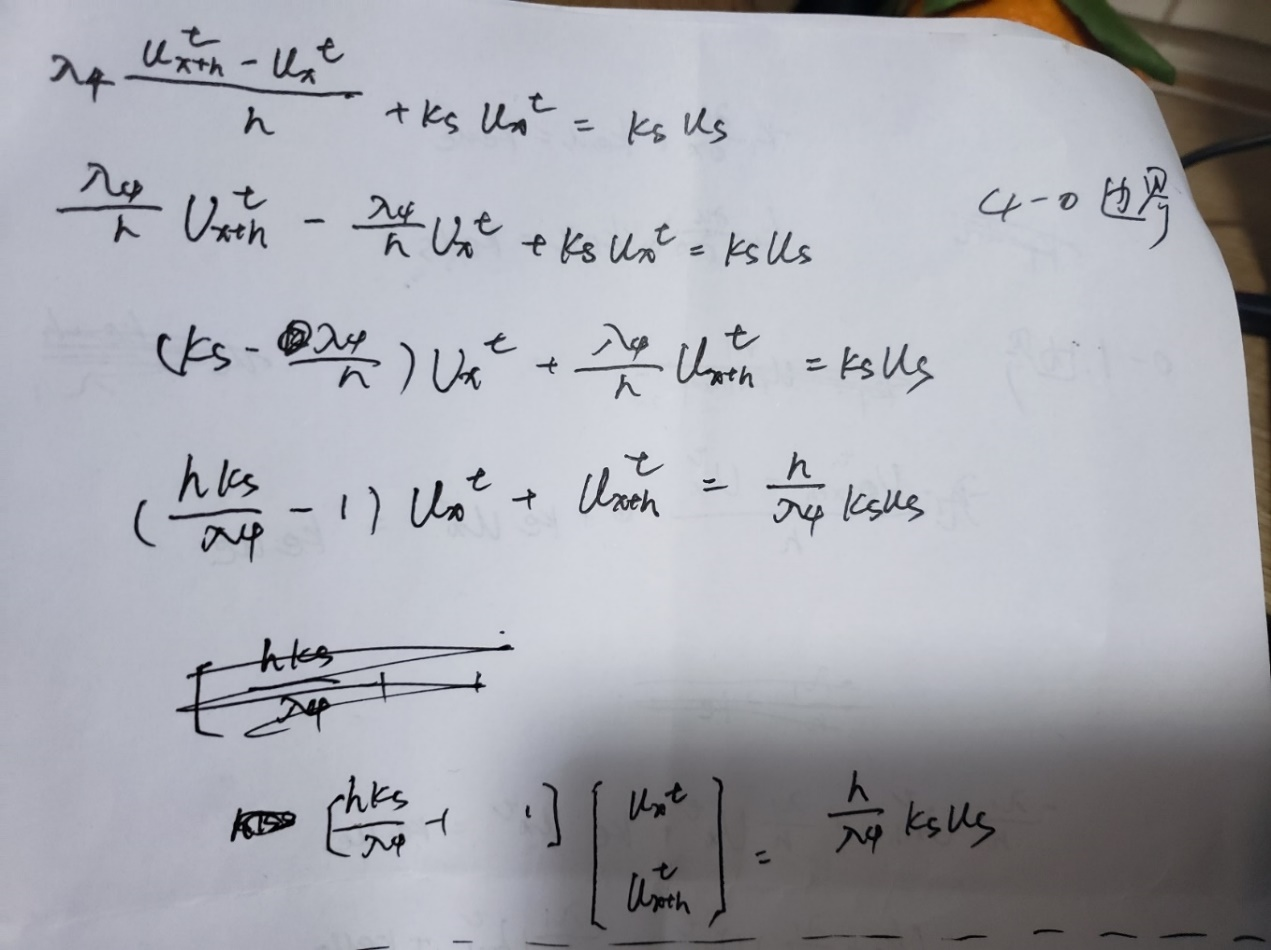 λ₄ (u_{x+h}^t - u_x^t)/h + ks u_x^t = ks us
λ₄/h u_{x+h}^t - λ₄/h u_x^t + ks u_x^t = ks us
4-0 边界
(ks - λ₄/h) u_x^t + λ₄/h u_{x+h}^t = ks us
(h ks/λ₄ - 1) u_x^t + u_{x+h}^t = h/λ₄ ks us
[h ks/λ₄ -1 1] [u_x^t u_{x+h}^t] = h/λ₄ ks us